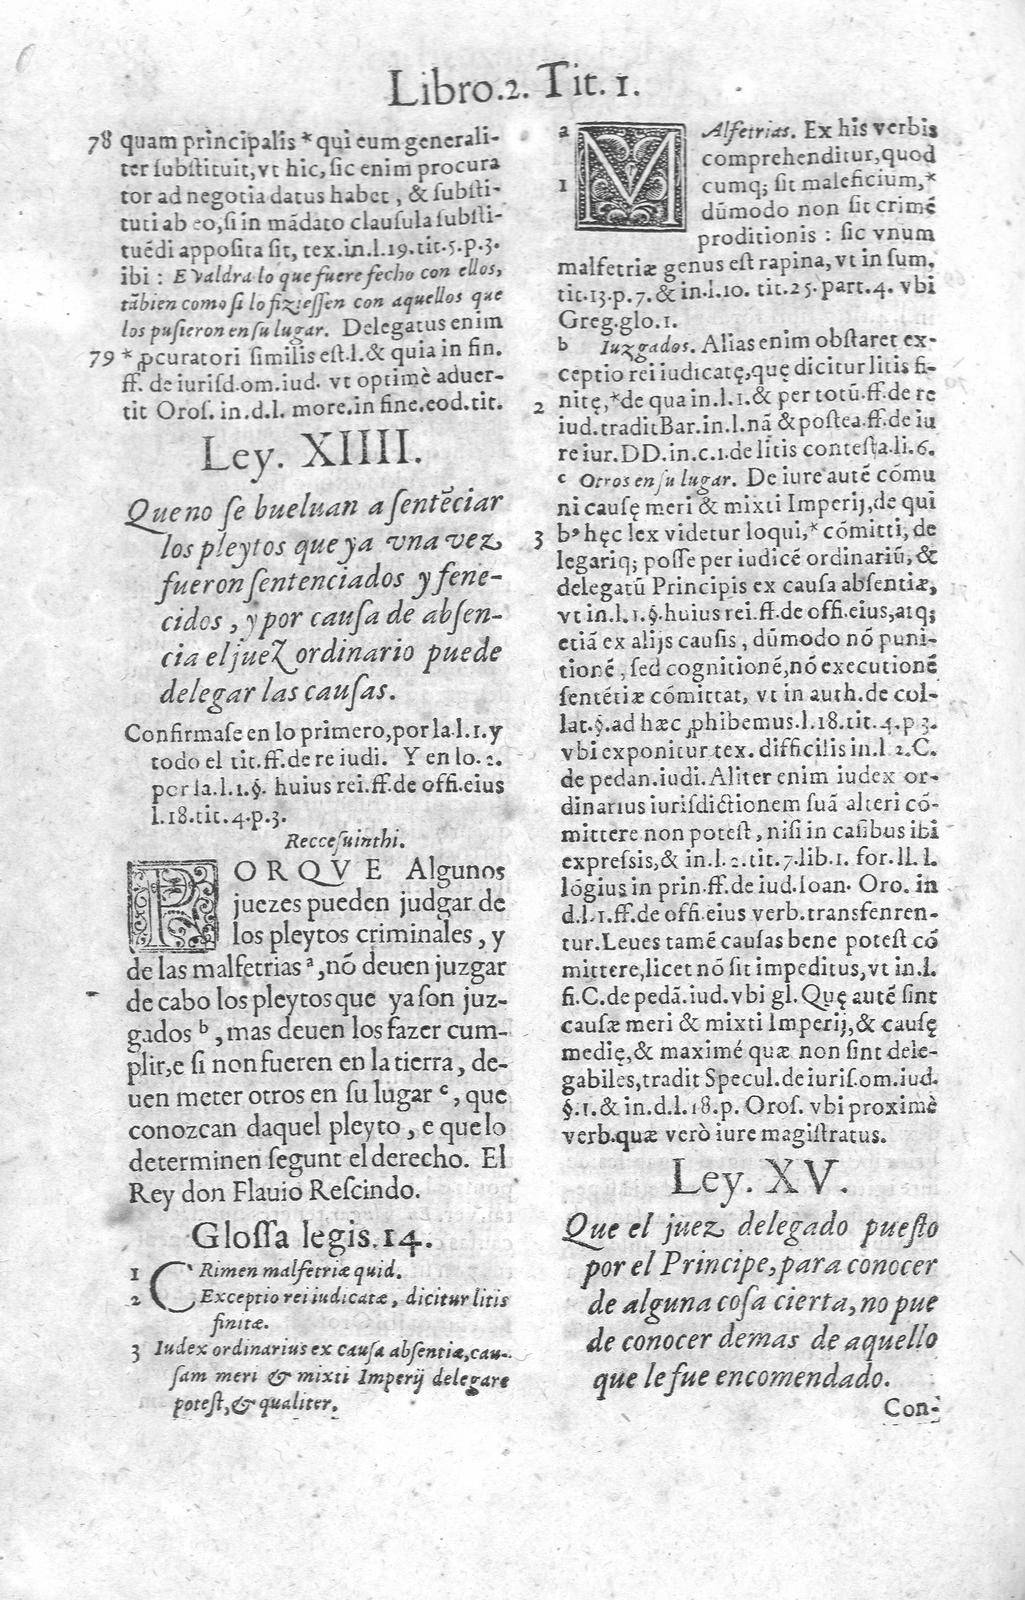 Libro.2. Tit. 1.
78 quam principalis * qui eum generali-
ter substituit, vt hic, sic enim procura
tor ad negotia datus habet, & substi-
tuti ab eo, si in mãdato clausula substi-
tuẽdi apposita sit, tex.in.l.19.tit.5.p.3.
ibi : E Valdra lo que fuere fecho con ellos,
tãbien como si lo fiziessen con aquellos que
los pusieron en su lugar. Delegatus enim
79 * ꝓcuratori similis est.l.& quia in fin.
ff. de iurisd.om.iud. vt optimè aduer-
tit Oros. in.d.l. more.in fine.eod.tit.
Ley. XIIII.
Que no se bueluan a sentẽciar
los pleytos que ya vna vez
fueron sentenciados y fene-
cidos, y por causa de absen-
cia el juez ordinario puede
delegar las causas.
Confirmase en lo primero, por la.l.1.y
todo el tit.ff.de re iudi. Y en lo.2.
por la.l.1.§. huius rei.ff.de offi.eius
l.18.tit.4.p.3.
Reccesuinthi.
PORQVE Algunos
juezes pueden judgar de
los pleytos criminales, y
de las malfetrias a, nõ deuen juzgar
de cabo los pleytos que ya son juz-
gados b, mas deuen los fazer cum-
plir, e si non fueren en la tierra, de-
uen meter otros en su lugar c, que
conozcan daquel pleyto, e que lo
determinen segunt el derecho. El
Rey don Flauio Rescindo.
Glossa legis.14.
1 CRimen malfetriæ quid.
2 Exceptio rei iudicatæ, dicitur litis
finitæ.
3 Iudex ordinarius ex causa absentiæ, cau-
sam meri & mixti Imperij delegare
potest, & qualiter.
a MAlfetrias. Ex his verbis
comprehenditur, quod
1 cumq; sit maleficium, *
dũmodo non sit crimẽ
proditionis : sic vnum
malfetriæ genus est rapina, vt in sum.
tit.13.p.7.& in.l.10. tit.25.part.4. vbi
Greg.glo.1.
b Iuzgados. Alias enim obstaret ex-
ceptio rei iudicatę, quę dicitur litis fi-
2 nitę, *de qua in.l.1.& per totũ.ff.de re
iud.tradit Bar.in.l.nã & postea.ff.de iu
re iur. DD.in.c.1.de litis contesta.li.6.
c Otros en su lugar. De iure autẽ cõmu
ni causę meri & mixti Imperij, de qui
3 bꝰ hęc lex videtur loqui, * cõmitti, de
legariq; posse per iudicẽ ordinariũ, &
delegatũ Principis ex causa absentiæ,
vt in.l.1.§.huius rei.ff.de offi.eius, atq;
etiã ex alijs causis, dũmodo nõ puni-
tionẽ, sed cognitionẽ, nõ executionẽ
sentẽtiæ cõmittat, vt in auth.de col-
lat.§.ad hæc ꝓhibemus.l.18.tit.4.p.3.
vbi exponitur tex. difficilis in.l 2.C.
de pedan.iudi. Aliter enim iudex or-
dinarius iurisdictionem suã alteri cõ-
mittere non potest, nisi in casibus ibi
expressis, & in.l.2.tit.7.lib.1. for.ll.l.
lõgius in prin.ff.de iud.Ioan. Oro. in
d.l.1.ff.de offi.eius verb.transfenren-
tur. Leues tamẽ causas bene potest cõ
mittere, licet nõ sit impeditus, vt in.l.
fi.C.de pedã.iud.vbi gl. Quę autẽ sint
causæ meri & mixti Imperij, & causę
medię, & maximẽ quæ non sint dele-
gabiles, tradit Specul.de iuris.om.iud.
§.1.& in.d.l.18.p. Oros. vbi proximè
verb.quæ verò iure magistratus.
Ley. XV.
Que el juez delegado puesto
por el Principe, para conocer
de alguna cosa cierta, no pue
de conocer demas de aquello
que le fue encomendado.
Con-